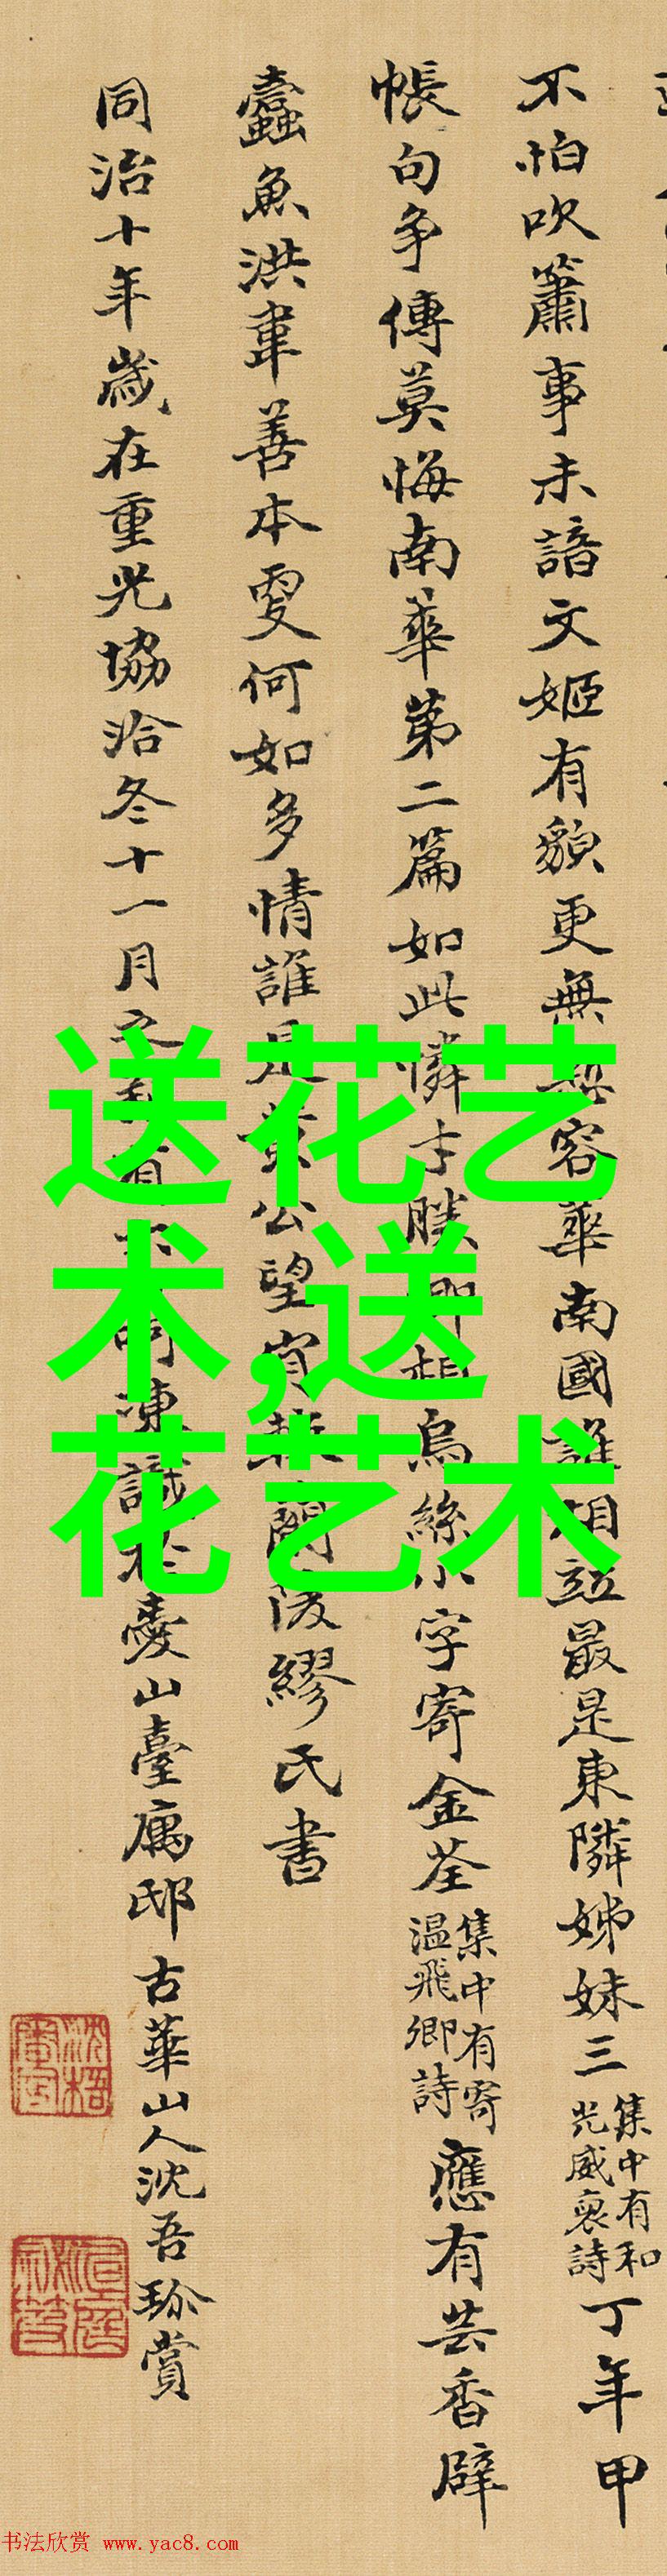 不怕吹簫事未諳文姬有貌更無容華南國誰相竝最是東隣姊妹三
集中有和
光威裒詩
丁年甲
帳句爭傳莫悔南華第二篇如此憐才勝相烏絲小字寄金荃
集中有寄
温飛卿詩
應有芸香辟
蠹魚洪韋善本叓何如多情誰是黃公望肯闌陵繆氏書
同治十年歲在重光協洽冬十一月之有凍識於山臺寓邸古華山人沈吾珎賞
送花艺
术,送
花艺术
书法欣赏 www.yac8.com